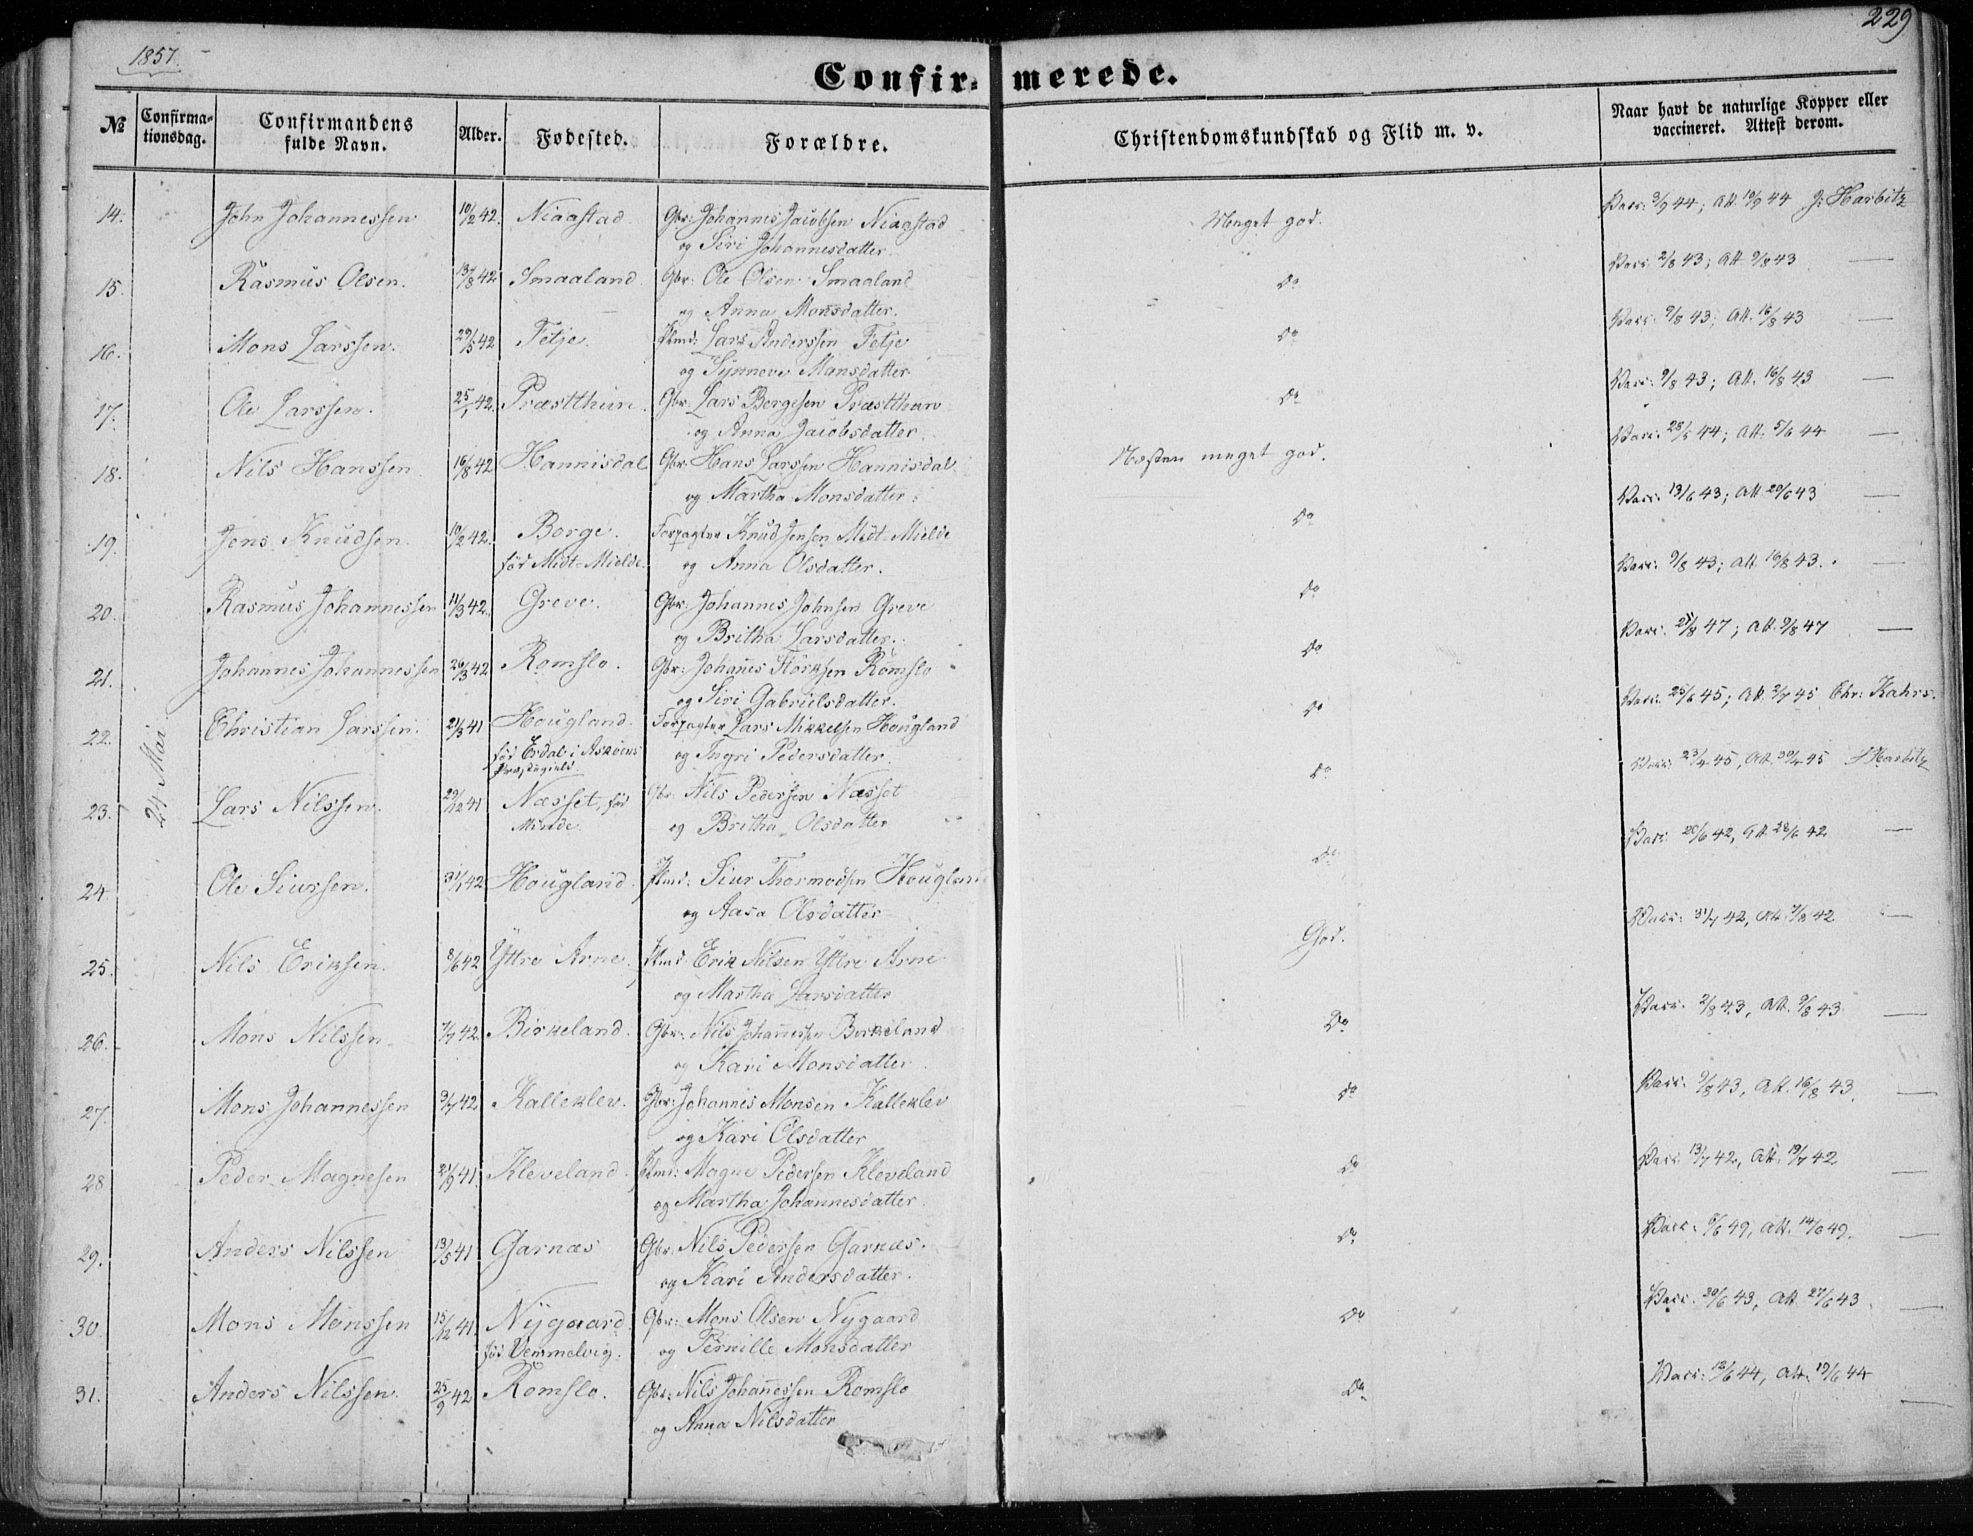 1857.
229
Confirmerede.
№ Confirmationsdag. Confirmandens fulde Navn. Alder. Fødested. Forældre. Christendomskundskab og Flid m. v. Naar havt de naturlige Kopper eller vaccineret. Attest derom.
24 Mai
14. John Johannessen 10/2 42. Niaastad Gbr: Johannes Jacobsen Niaastad Meget god. Vacc: 3/9 44; Att. 10/9 44 J: Harbitz
og Siri Johannesdatter.
15. Rasmus Olsen. 13/8 42 Smaaland Gbr: Ole Olsen Smaaland Do Vacc: 2/8 43; Att. 9/8 43 —
og Anna Monsdatter.
16. Mons Larssen. 29/5 42 Fetje. Hmd: Lars Anderssen Fetje Do Vacc: 9/8 43; Att. 16/8 43 —
og Synneve Mansdatter
17. Ole Larssen. 25/1 42. Præstthun. Gbr: Lars Bergesen Præstthun Do Vacc: 9/8 43; Att. 16/8 43 —
og Anna Jacobsdatter.
18. Nils Hanssen 16/8 42 Hannisdal Gbr: Hans Larssen Hannisdal Næsten meget god. Vacc: 28/5 44; Att: 5/6 44 —
og Martha Monsdatter.
19. Jens Knudsen. 10/2 42. Borge. Forpagter Knud Jensen Midt-Mielde Do Vacc: 13/6 43; Att 20/6 43 —
født Midt-Mielde. og Anna Olsdatter.
20. Rasmus Johannessen 11/3 42. Greve. Gbr: Johannes Johnsen Greve Do Vacc: 9/8 43; Att. 16/8 43. —
og Britha Larsdatter.
21. Johannes Johannessen 26/3 42 Romslo. Gbr: Johanes Størksen Romslo Do Vacc. 25/8 47; Att. 9/8 47 —
og Siri Gabrielsdatter.
22. Christian Larssen. 21/3 41 Hougland. Forpagter Lars Mikkelsen Hougland Do Vacc: 25/6 45; Att. 2/7 45 Chr: Kahrs.
født Erdal i Askøens Præstegield. og Ingri Pedersdatter.
23. Lars Nilssen. 29/12 41 Næsset, født Gbr: Nils Pedersen Næsset Do Vacc: 23/4 45, Att. 30/4 45 J Harbitz
Minde. og Britha Olsdatter
24 Ole Siurssen. 31/1 42 Hougland. Hmd: Siur Thormodsen Hougland Do Vacc: 20/6 42, Att. 28/6 42 —
og Aasa Olsdatter
25. Nils Eriksen. 8/6 42 Yttre Arne. Hmd: Erik Nilsen Yttre Arne God. Vacc: 31/7 42, Att. 7/8 42 —
og Martha Larsdatter
26. Mons Nilssen 7/7 42. Birkeland. Gbr: Nils Johannessen Berkeland Do Vacc: 2/8 43, Att. 9/8 43 —
og Kari Monsdatter
27. Mons Johannessen 9/7 42 Kalleklev. Gbr: Johannes Monsen Kalleklev Do Vacc: 9/8 43, Att. 16/8 43. —
og Kari Olsdatter
28 Peder Magnesen 21/9 41. Kleveland. Hmd: Magne Pedersen Kleveland Do Vacc 13/7 42, Att. 19/7 42 —
og Martha Johannesdatter
29. Anders Nilssen 13/5 41 Garnæs Gbr: Nils Pedersen Garnæs. Do Vacc: 8/6 49, Att. 14/6 49. —
og Kari Andersdatter.
30. Mons Monssen 15/12 41. Nygaard Gbr: Mons Olsen Nygaard Do Vacc: 20/6 43, Att 27/6 43. —
født Vemmelvig. og Pernille Monsdatter
31. Anders Nilssen. 25/9 42 Romslo. Gbr: Nils Johannessen Romslo Do Vacc: 12/6 44, Att: 19/6 44 —
og Anna Nilsdatter